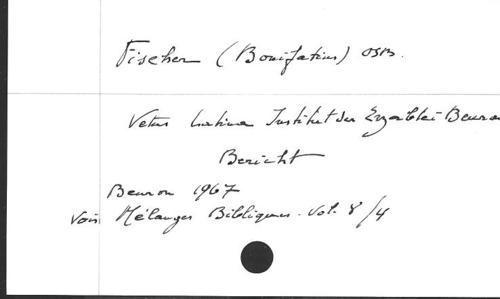 Fischer (Bonifatius) OSB.
Vetus Latina Institut der Erzabtei Beuron
Bericht
Beuron 1967
Voir Mélanges Bibliques. Vol. 8/4